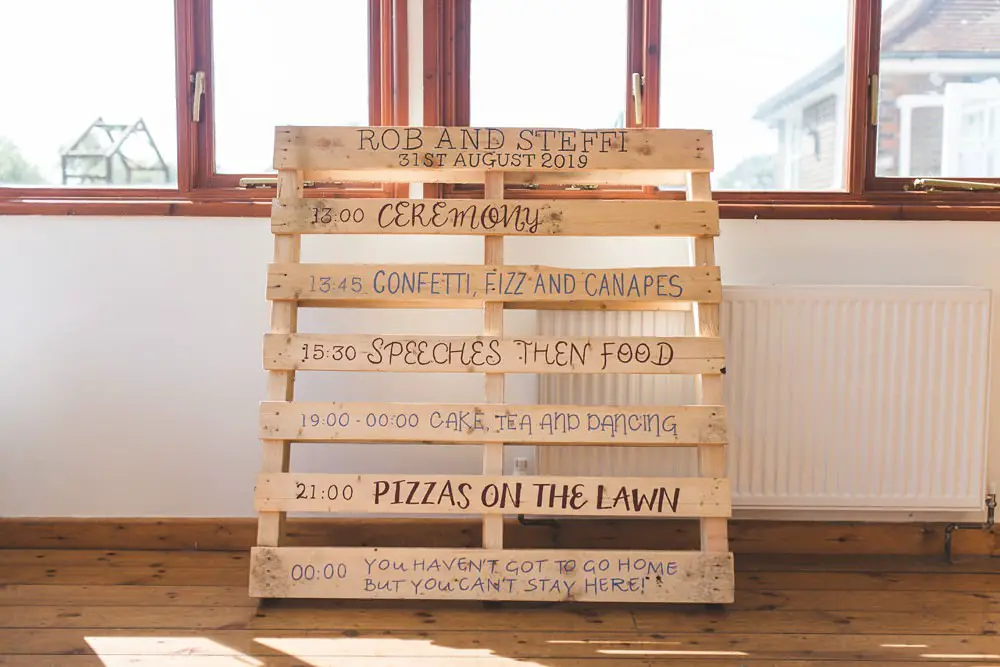 ROB AND STEFFI
31ST AUGUST 2019
13:00 CEREMONY
13:45 CONFETTI, FIZZ AND CANAPES
15:30 SPEECHES THEN FOOD
19:00 - 00:00 CAKE, TEA AND DANCING
21:00 PIZZAS ON THE LAWN
00:00 YOU HAVEN'T GOT TO GO HOME
BUT YOU CAN'T STAY HERE!